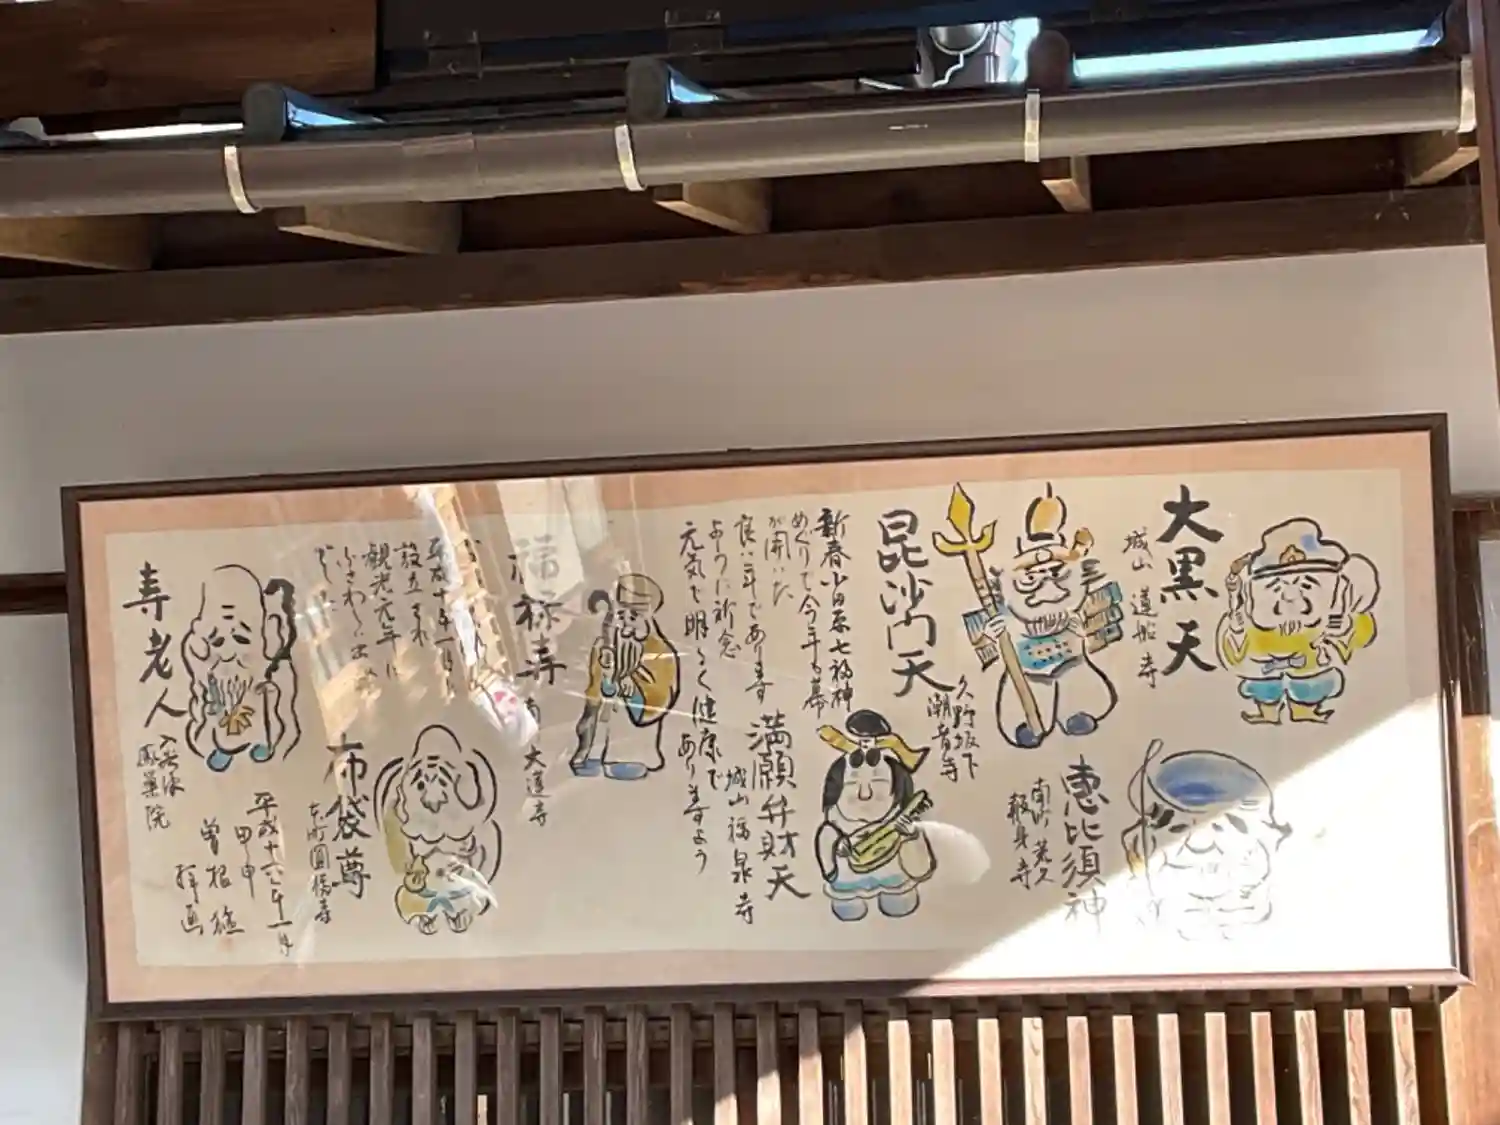 大黒天
城山 蓮船寺
恵比須神
南町 荒久
報身寺
毘沙門天
久野坂下
潮音寺
新春小田原七福神
めぐりで今年も幕
が開いた
良い年であります
ように祈念
元気で明るく健康で
ありますよう
満願弁財天
城山 福泉寺
福禄寿
大蓮寺
観光元年に
ふさわしい
布袋尊
本町 圓福寺
寿老人
鳳巣院
平成十六年一月
甲申
曽根
拝画